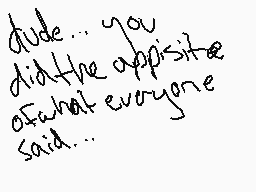 dude... you
did the appisite
of what everyone
said...